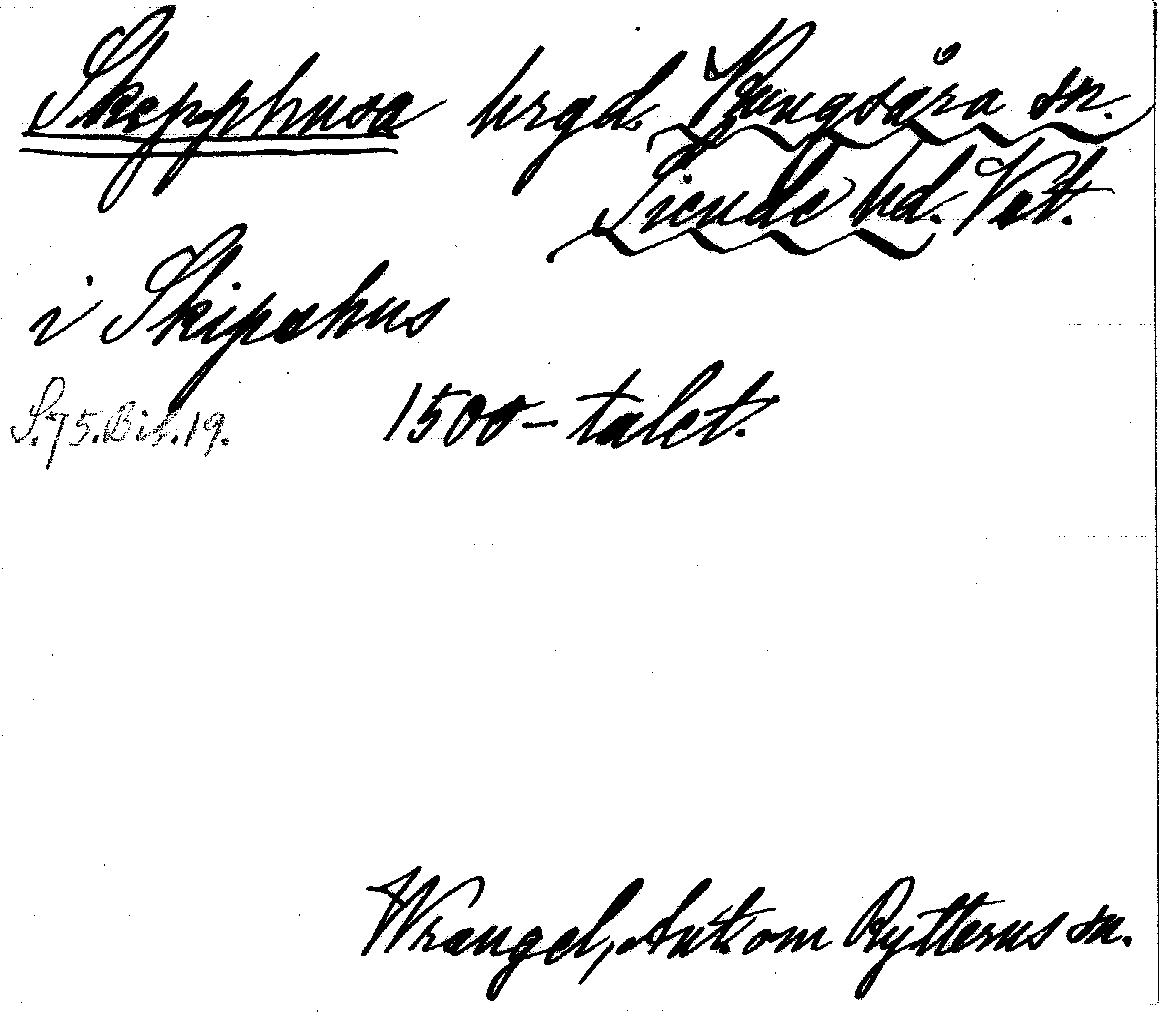 Skepphusa hrgd. Kungsåra sn.
Siende hd. Vst.
i Skipahus
S.75.Bil.19. 1500-talet.
Wrangel, Ant. om Rytterns sn.